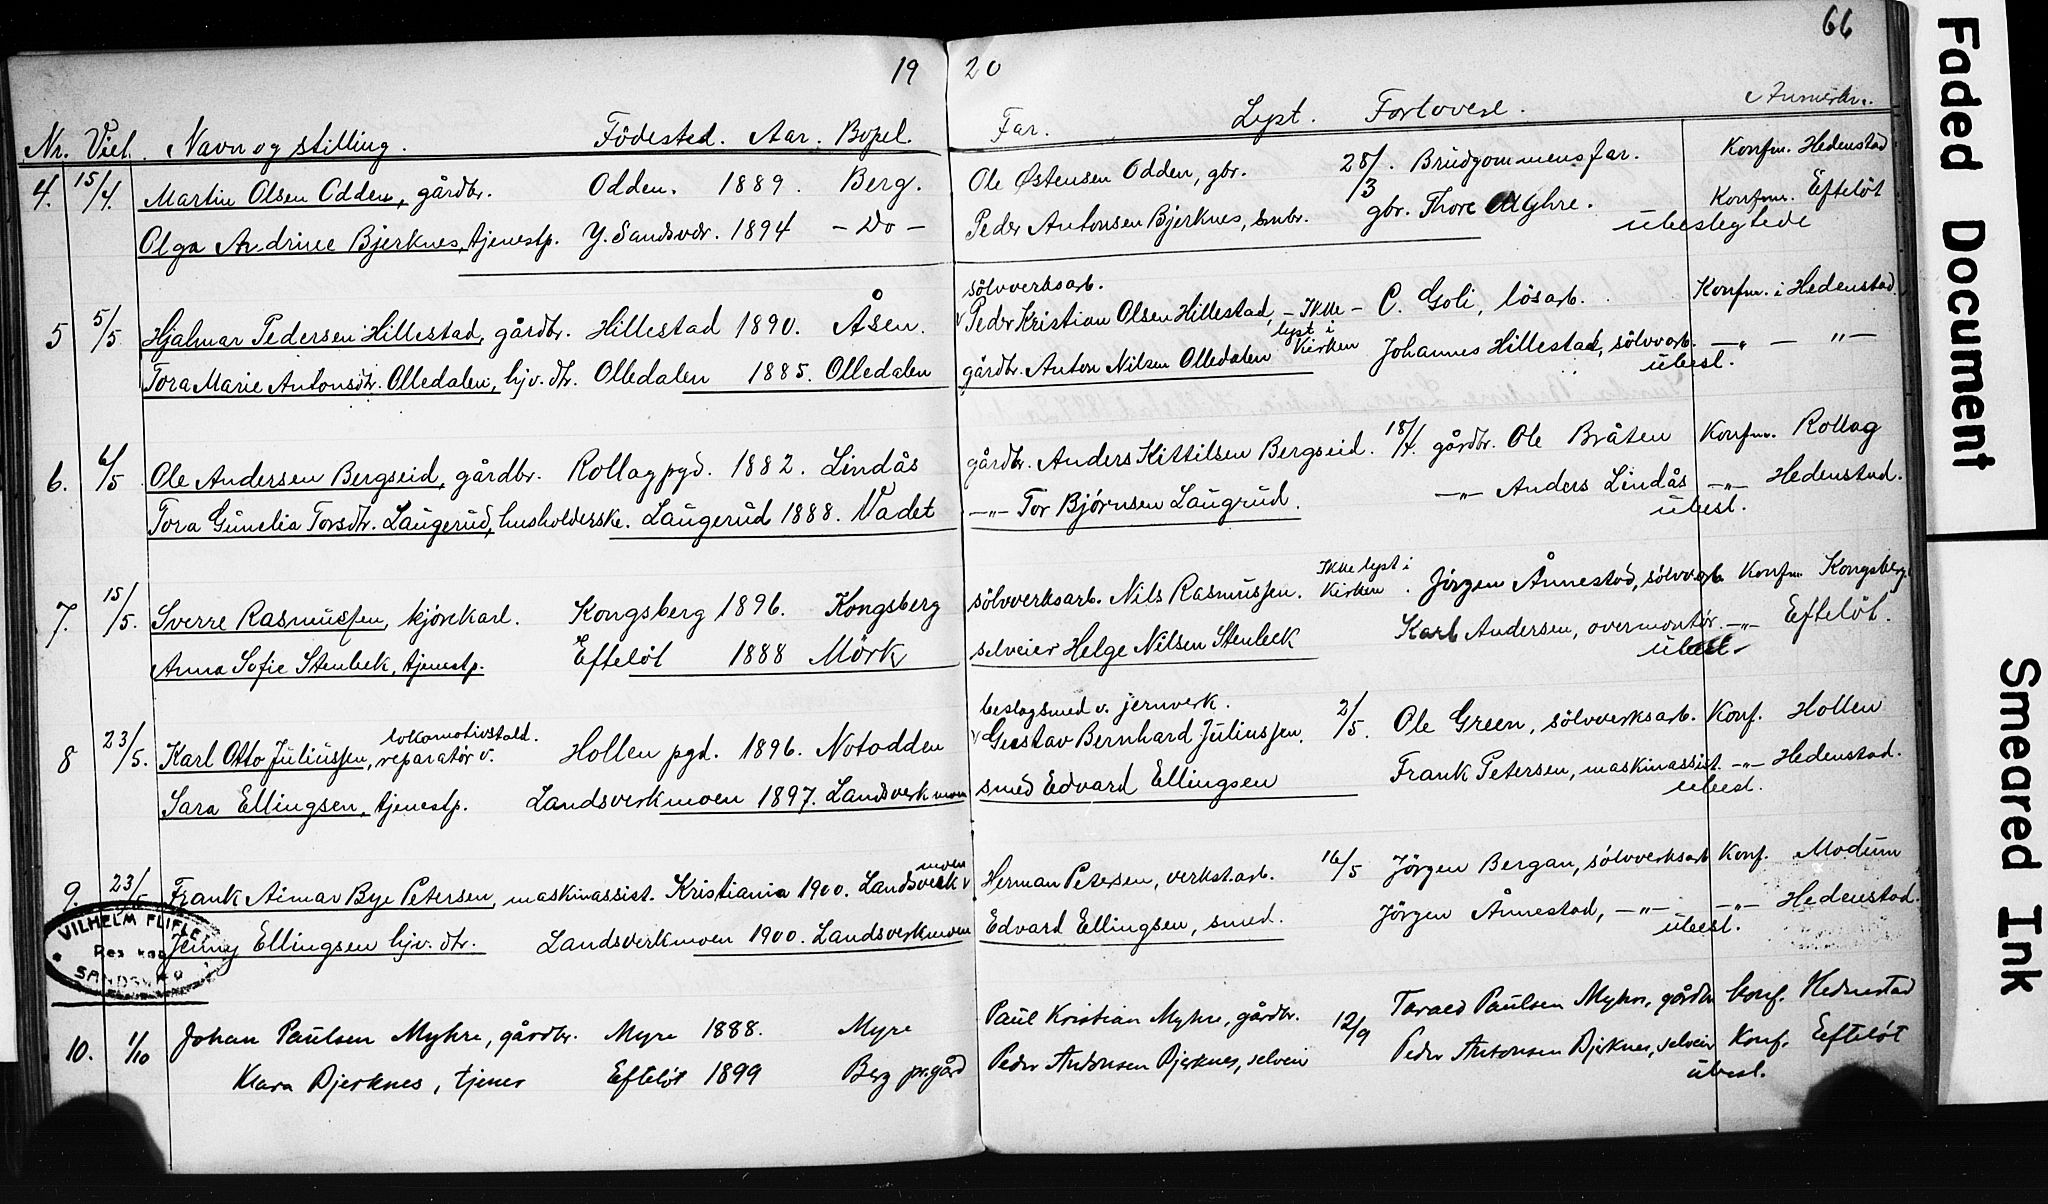 66
19 20
Nr. Viet. Navn og stilling. Födested. Aar. Bopel. Far. Lyst. Forlovere. Anmerkn.
4. 15/4. Martin Olsen Odden, gårdbr. Odden. 1889. Berg. Ole Østensen Odden, gbr. 28/3. Brudgommens far. Konfm. Hedenstad
Olga Andrine Bjerknes, tjenestp. Y. Sandsvær. 1894 - Do - Peder Antonsen Bjerknes, smbr. gbr. Thore Myhre. Konfm. Efteløt
ubeslegtede
sölvverksarb.
5 5/5 Hjalmar Pedersen Hillestad, gårdbr. Hillestad 1890. Åsen. Peder Kristian Olsen Hillestad, - Ikke lyst i Kirken - C. Goli, lösarb. Konfm. i Hedenstad.
Tora Marie Antonsdtr. Olledalen, hjv. dtr. Olledalen 1885. Olledalen gårdbr. Anton Nilsen Olledalen Johannes Hillestad, sölvvarb. -"- -"-
ubesl.
6. 6/5 Ole Andersen Bergseid, gårdbr. Rollag pgd. 1882. Lindås gårdbr. Anders Kittilsen Bergseid. 18/4. gårdbr. Ole Bråten Konfm. Rollag
Tora Gunelia Torsdtr. Laugerud, husholderske. Laugerud 1888. Vadet -"- Tor Bjørnsen Laugrud. -"- Anders Lindås -"- Hedenstad.
ubesl.
7. 15/5. Sverre Rasmussen, kjörekarl. Kongsberg 1896. Kongsberg sölvverksarb. Nils Rasmussen. Ikke lyst i Kirken. Jörgen Ånnestad, sölvvarb Konfm. Kongsberg
Anna Sofie Stenbek, tjenestp. Efteløt 1888 Mörk selveier Helge Nilsen Stenbeck Karl Andersen, overmontör. -"- Efteløt.
ubesl.
beslagsmed v. jernverk.
8 23/5. Karl Otto Juliussen, reparatör v. lokomotivstald. Hollen pgd. 1896. Notodden Gustav Bernhard Juliussen. 2/5. Ole Green, sölvverksarb. Konf. Hollen
Sara Ellingsen, tjenestp. Landsverkmoen 1897. Landsverkmoen smed Edvard Ellingsen Frank Petersen, maskinassist. -"- Hedenstad.
ubesl.
9. 23/5 Frank Aimar Bye Petersen, maskinassist. Kristiania 1900. Landsverkmoen Herman Petersen, verkst.arb. 16/5 Jörgen Bergan, sölvverksarb Konf. Modum
Jenny Ellingsen hjv. dtr. Landsverkmoen 1900. Landsverkmoen Edvard Ellingsen, smed. Jörgen Ånnestad, -"- -"- Hedenstad.
ubesl.
VILHELM FLIFLET
Res kap
SANDSVÆR
10. 1/10 Johan Paulsen Myhre, gårdbr. Myre 1888. Myre Paul Kristian Myhre, gårdbr. 12/9 Tarald Paulsen Myhre, gårdbr Konf. Hedenstad
Klara Bjerknes, tjener Efteløt 1899 Berg pr.gård Peder Antonsen Bjerknes, selveier Peder Antonsen Bjerknes, selveier Konf. Efteløt
ubesl.
Faded Document
Smeared Ink